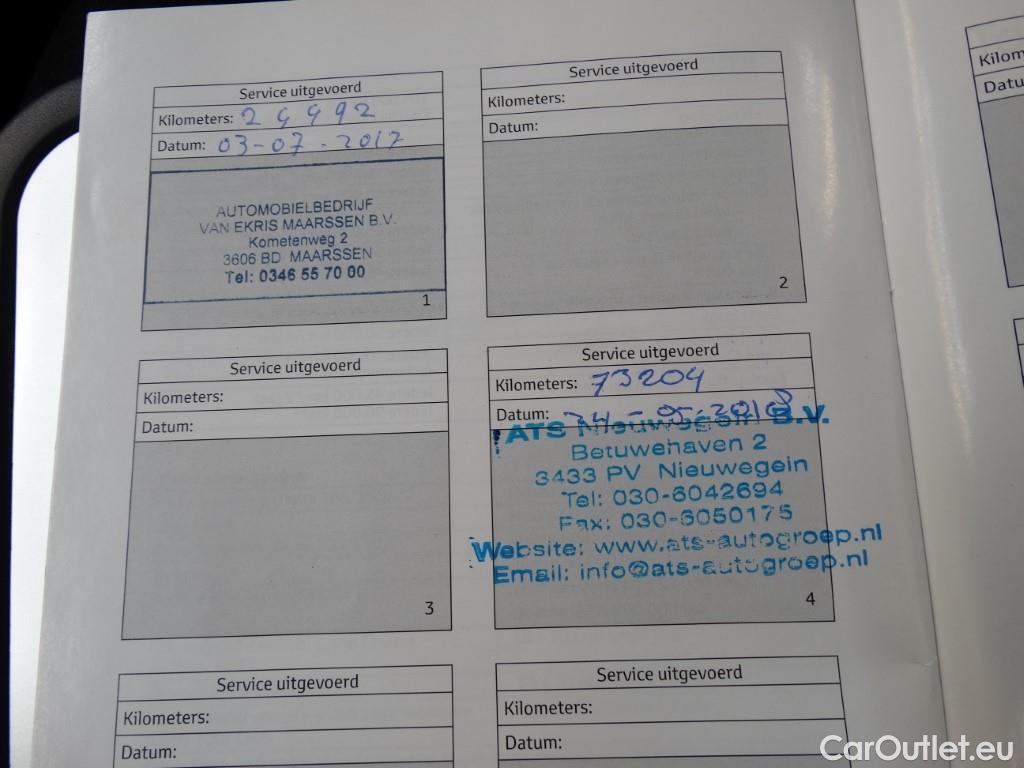 Service uitgevoerd
Kilometers: 24492
Datum: 03-07-2017
AUTOMOBIELBEDRIJF
VAN EKRIS MAARSSEN B.V.
Kometenweg 2
3606 BD MAARSSEN
Tel: 0346 55 70 00
1
Service uitgevoerd
Kilometers:
Datum:
2
Service uitgevoerd
Kilometers:
Datum:
3
Service uitgevoerd
Kilometers: 73204
Datum:
ATS Nieuwegein B.V.
Betuwehaven 2
3433 PV Nieuwegein
Tel: 030-6042694
Fax: 030-6050175
Website: www.ats-autogroep.nl
Email: info@ats-autogroep.nl
4
Service uitgevoerd
Kilometers:
Datum:
Service uitgevoerd
Kilometers:
Datum:
CarOutlet.eu